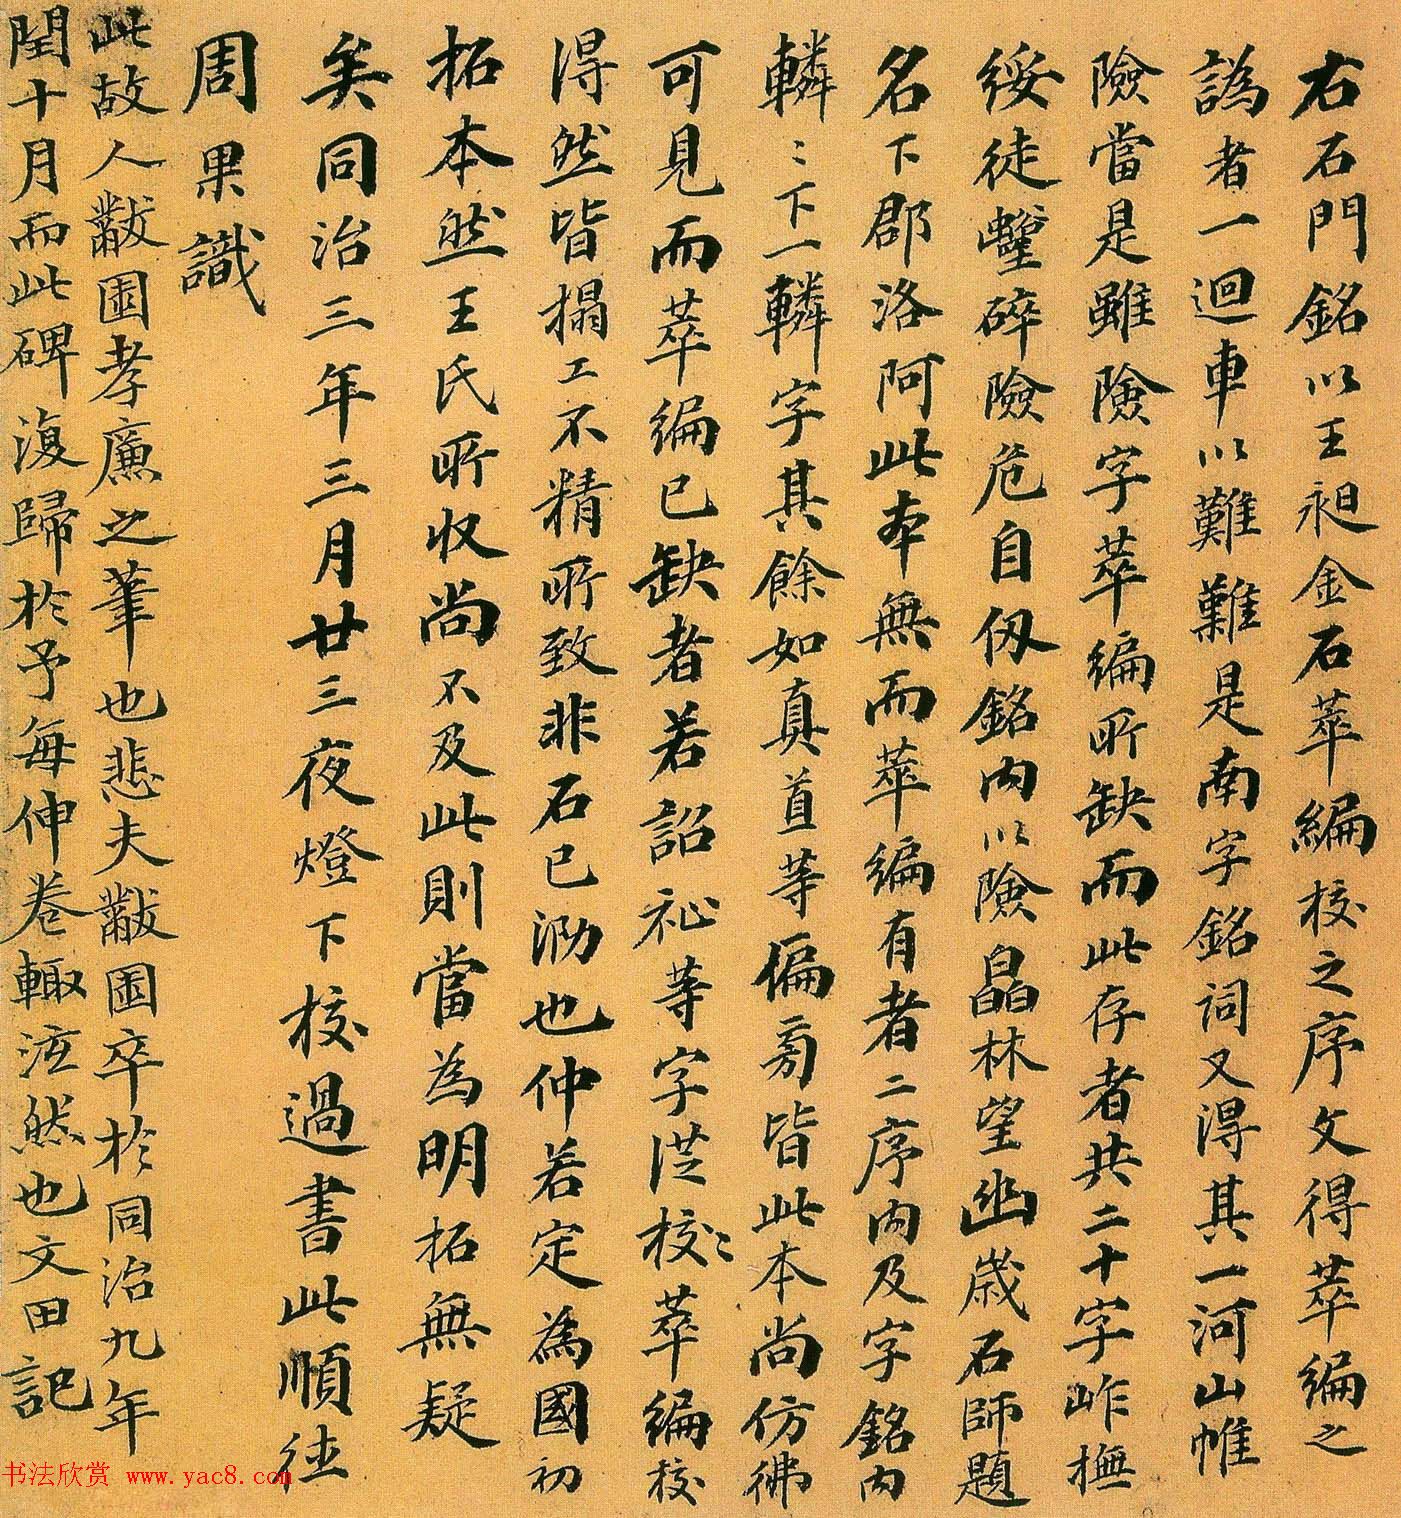 右石門銘以王昶金石萃編校之序文得萃編之
譌者一迴車以難難是南字銘詞又得其一河山帷
險當是雖險字萃編所缺而此存者共二十字岞撫
綏徒鑿碎險危自伋銘內以險晶林望幽歲石師題
名下郡洛阿此本無而萃編有者二序內及字銘內
轔〻下一轔字其餘如真首等偏旁皆此本尚仿彿
可見而萃編已缺者若詔祉等字從校〻萃編校
得然皆搨工不精所致非石已泐也仲若定為國初
拓本然王氏所收尚不及此則當為明拓無疑
矣同治三年三月廿三夜燈下校過書此順德
周果識
此故人黻園孝廉之筆也悲夫黻園卒於同治九年
閏十月而此碑復歸於予每伸卷輒泫然也文田記
书法欣赏 www.yac8.com